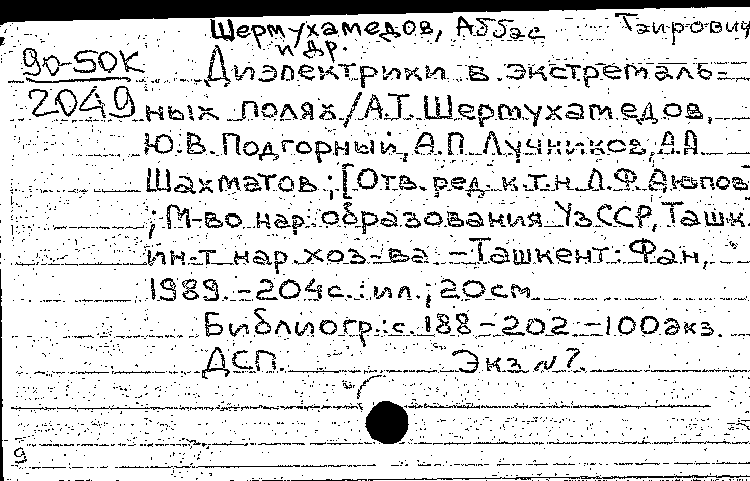 Шермухамедов, Аббас Таирович
и др.
90-50К
2049
Диэлектрики в экстремаль-
ных полях/А.Т.Шермухамедов,
Ю.В.Подгорный, А.П. Лучников, А.А
Шахматов; [Отв. ред. к.т.н Л.Ф. Аюпов
; М-во нар. образования УзССР, Ташк.
ин-т нар. хоз-ва. - Ташкент: Фан,
1989. - 204с.: ил.; 20см
Библиогр.: с. 188-202. - 100экз.
ДСП. Экз №7.
9